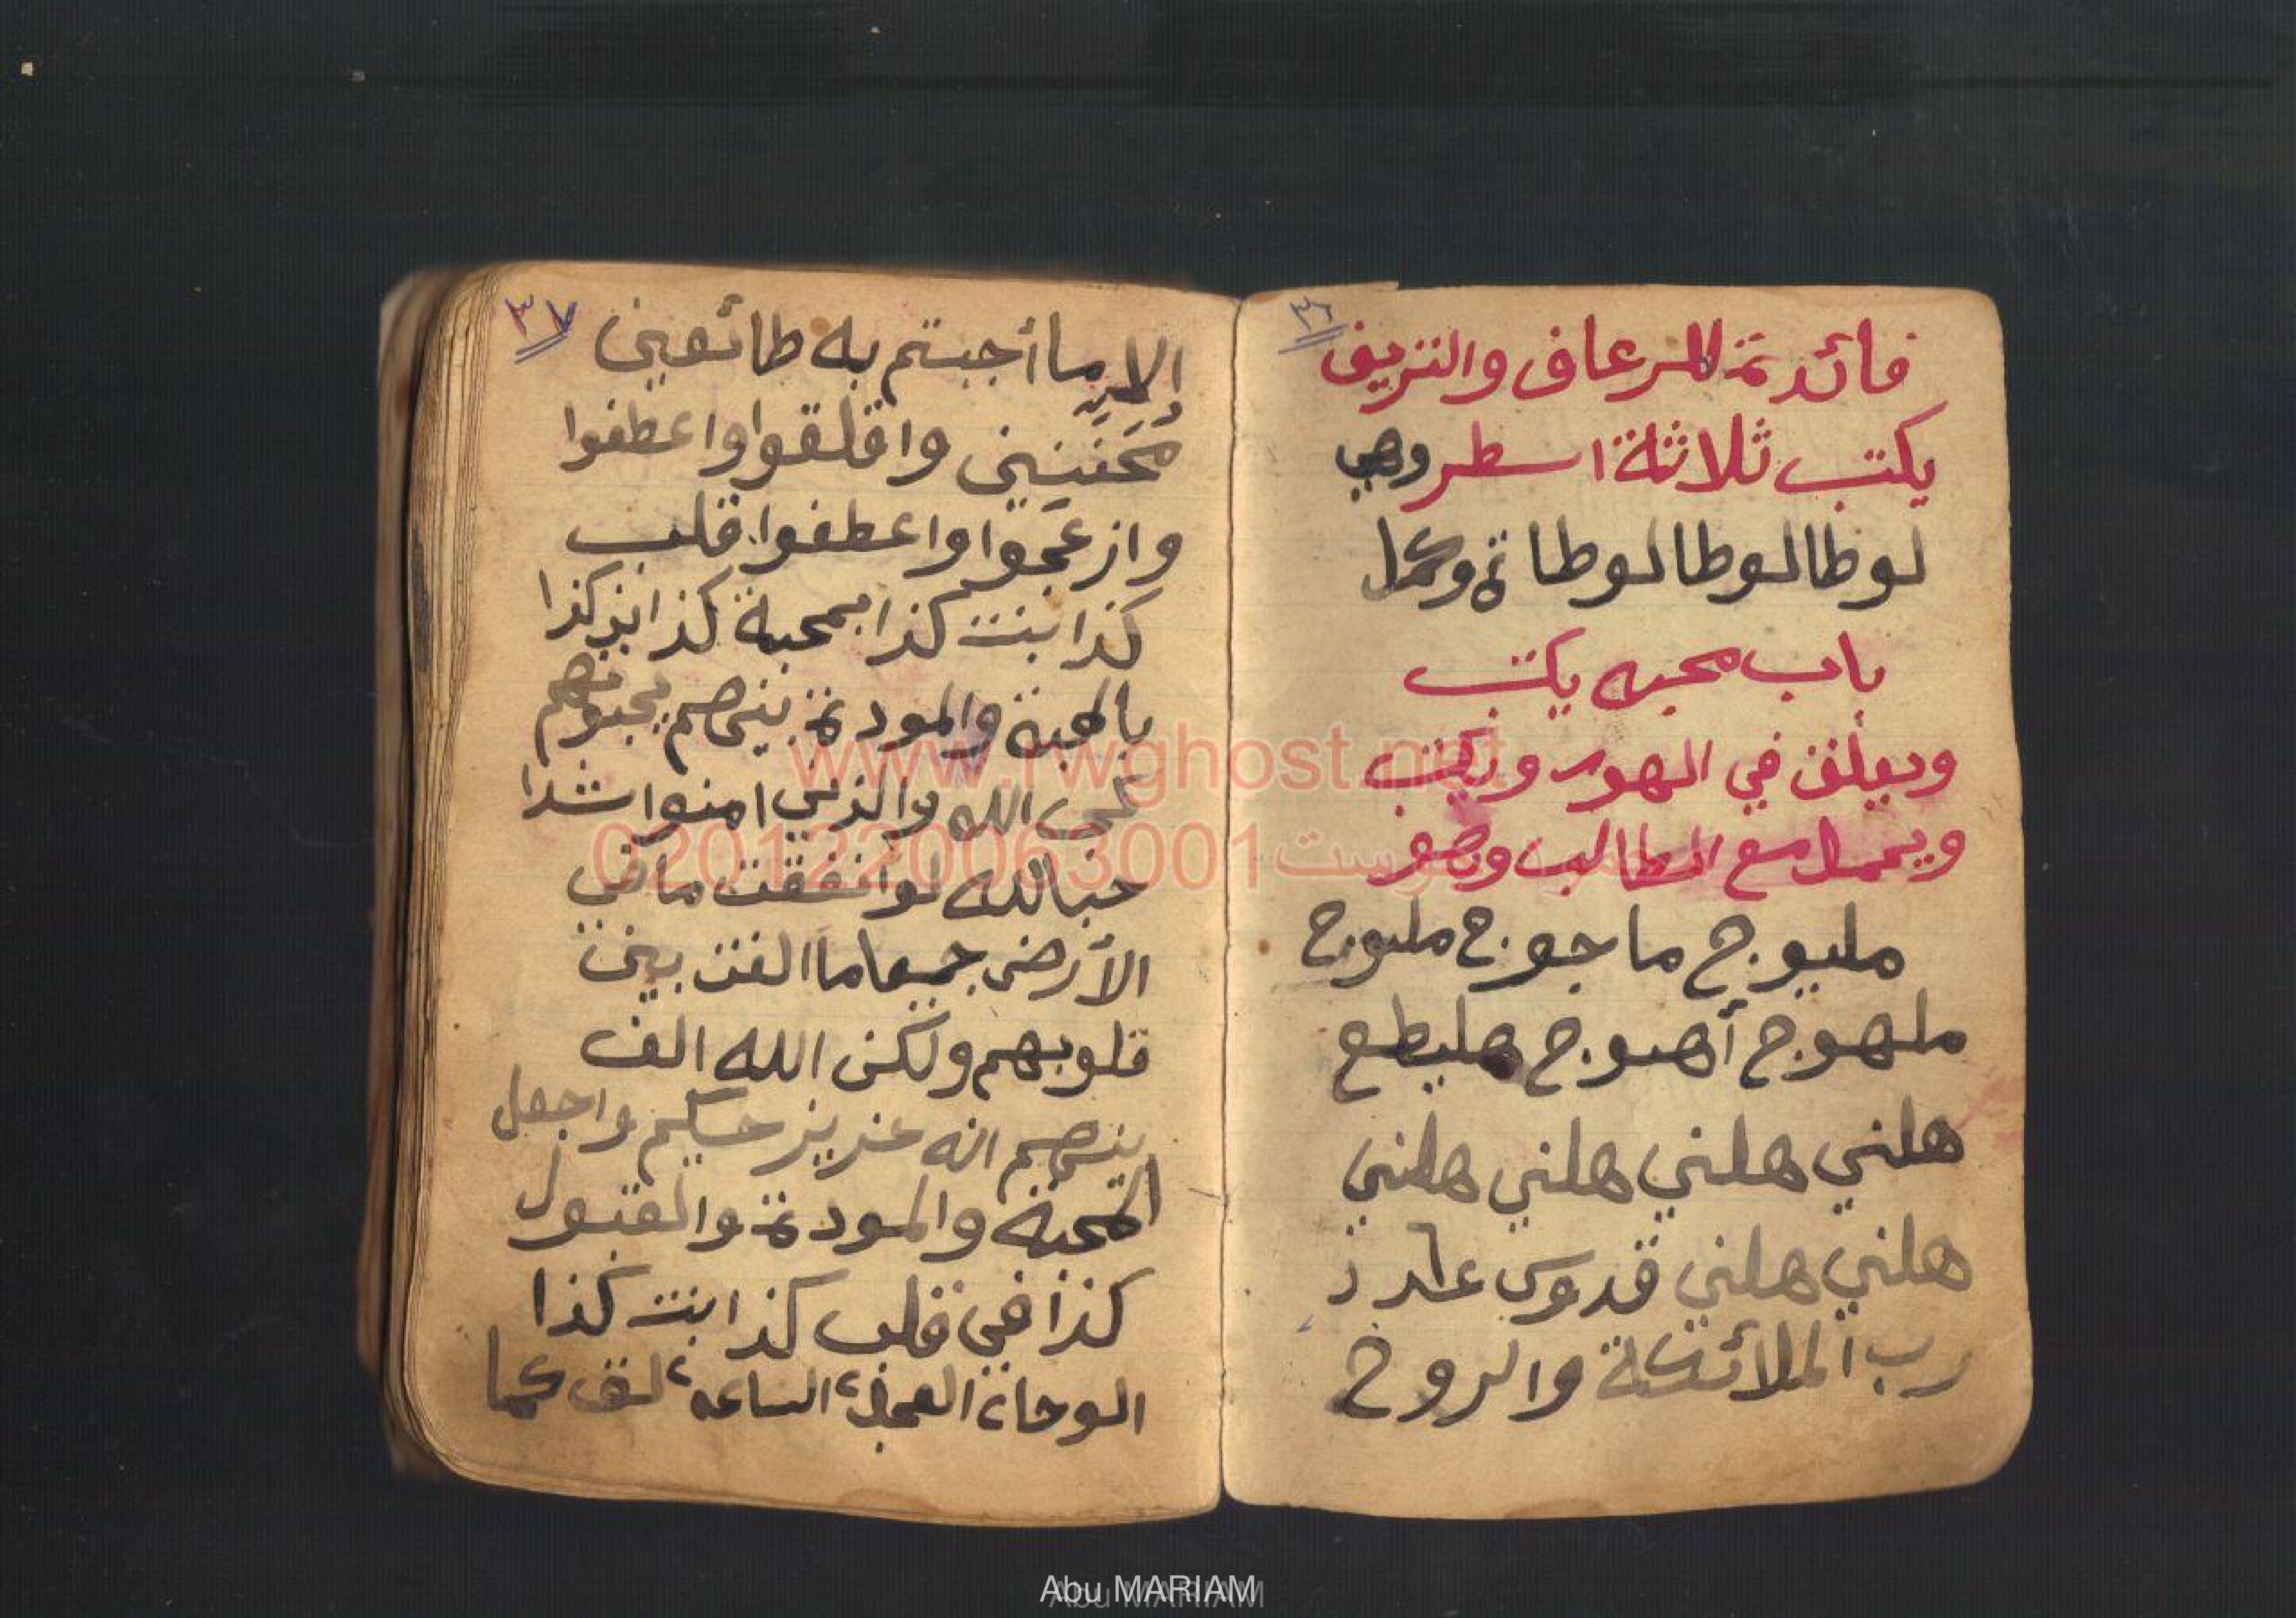 ٣٦
فائدة للرعاف والنزيف
يكتب ثلاثة اسطر وهي
لوطا لوطا لوطاة وكمل
باب محبه يكتب
ويعلق في الهوى ويكتب
ويحمل مع الطالب وهو
مليوج ماجوج مليوج
ملهوج أهوج هليطع
هلني هلني هلني هلني
هلني هلني قدوس
رب الملائكة والروح
٣٧
الا ما أجبتم به طائعين
واقلقوا واعطفوا
وازعجوا واعطفوا قلب
كذا بنت كذا بمحبة كذا ابن كذا
بالمحبة والمودة بينهم يحبونهم
كحب الله والذين امنوا اشد
حبا لله لو انفقت ما في
الأرض جميعا ما الفت بين
قلوبهم ولكن الله الف
بينهم انه عزيز حكيم واجعل
المحبة والمودة والقبول
كذا في قلب كذا بنت كذا
الوحا، العجل، الساعه،
www.rwghost.net
0201220063001
Abu MARIAM